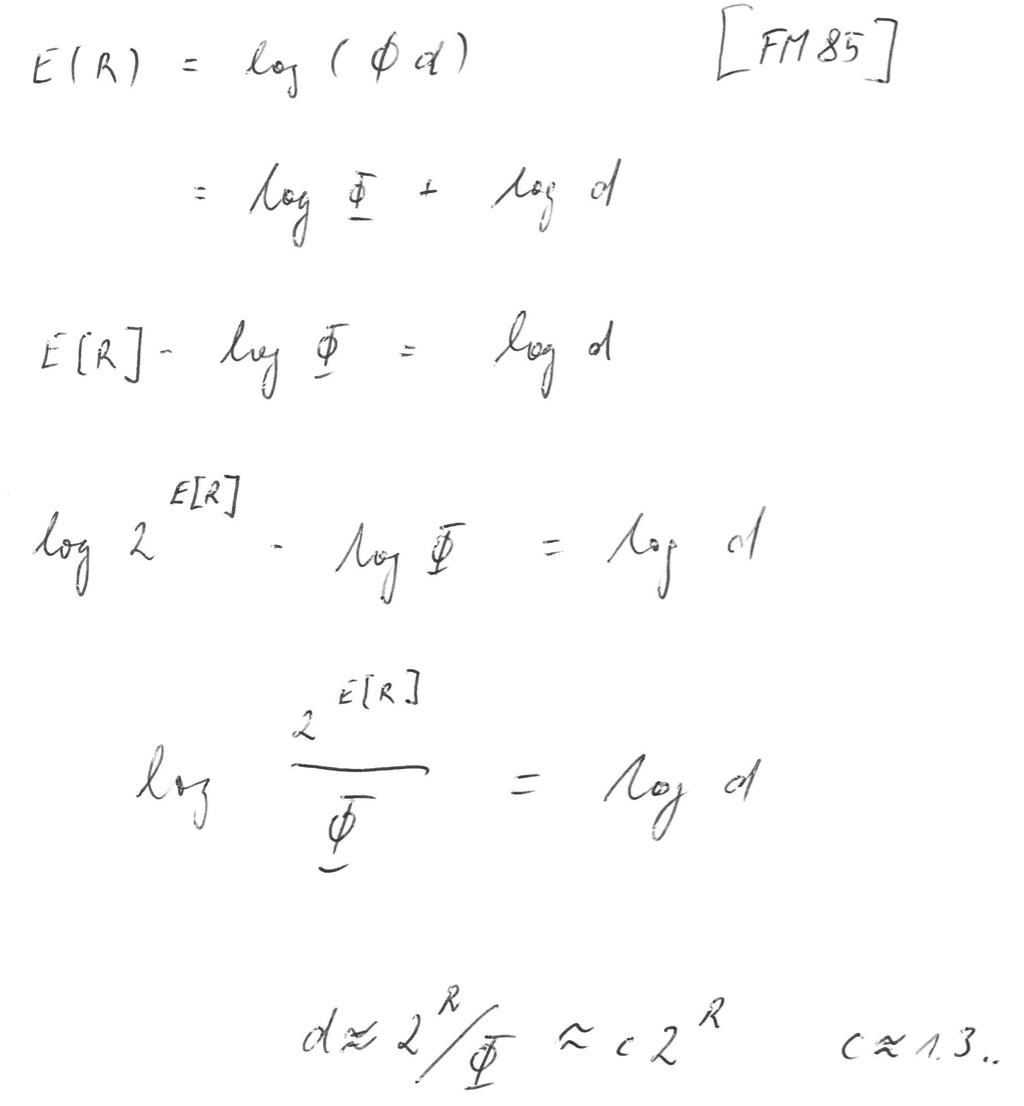 E(R) = log (ϕ d) [FM85]
= log Φ + log d
E[R] - log Φ = log d
log 2^E[R] - log Φ = log d
log 2^E[R] / Φ = log d
d ≈ 2^R/Φ ≈ c 2^R c ≈ 1.3..